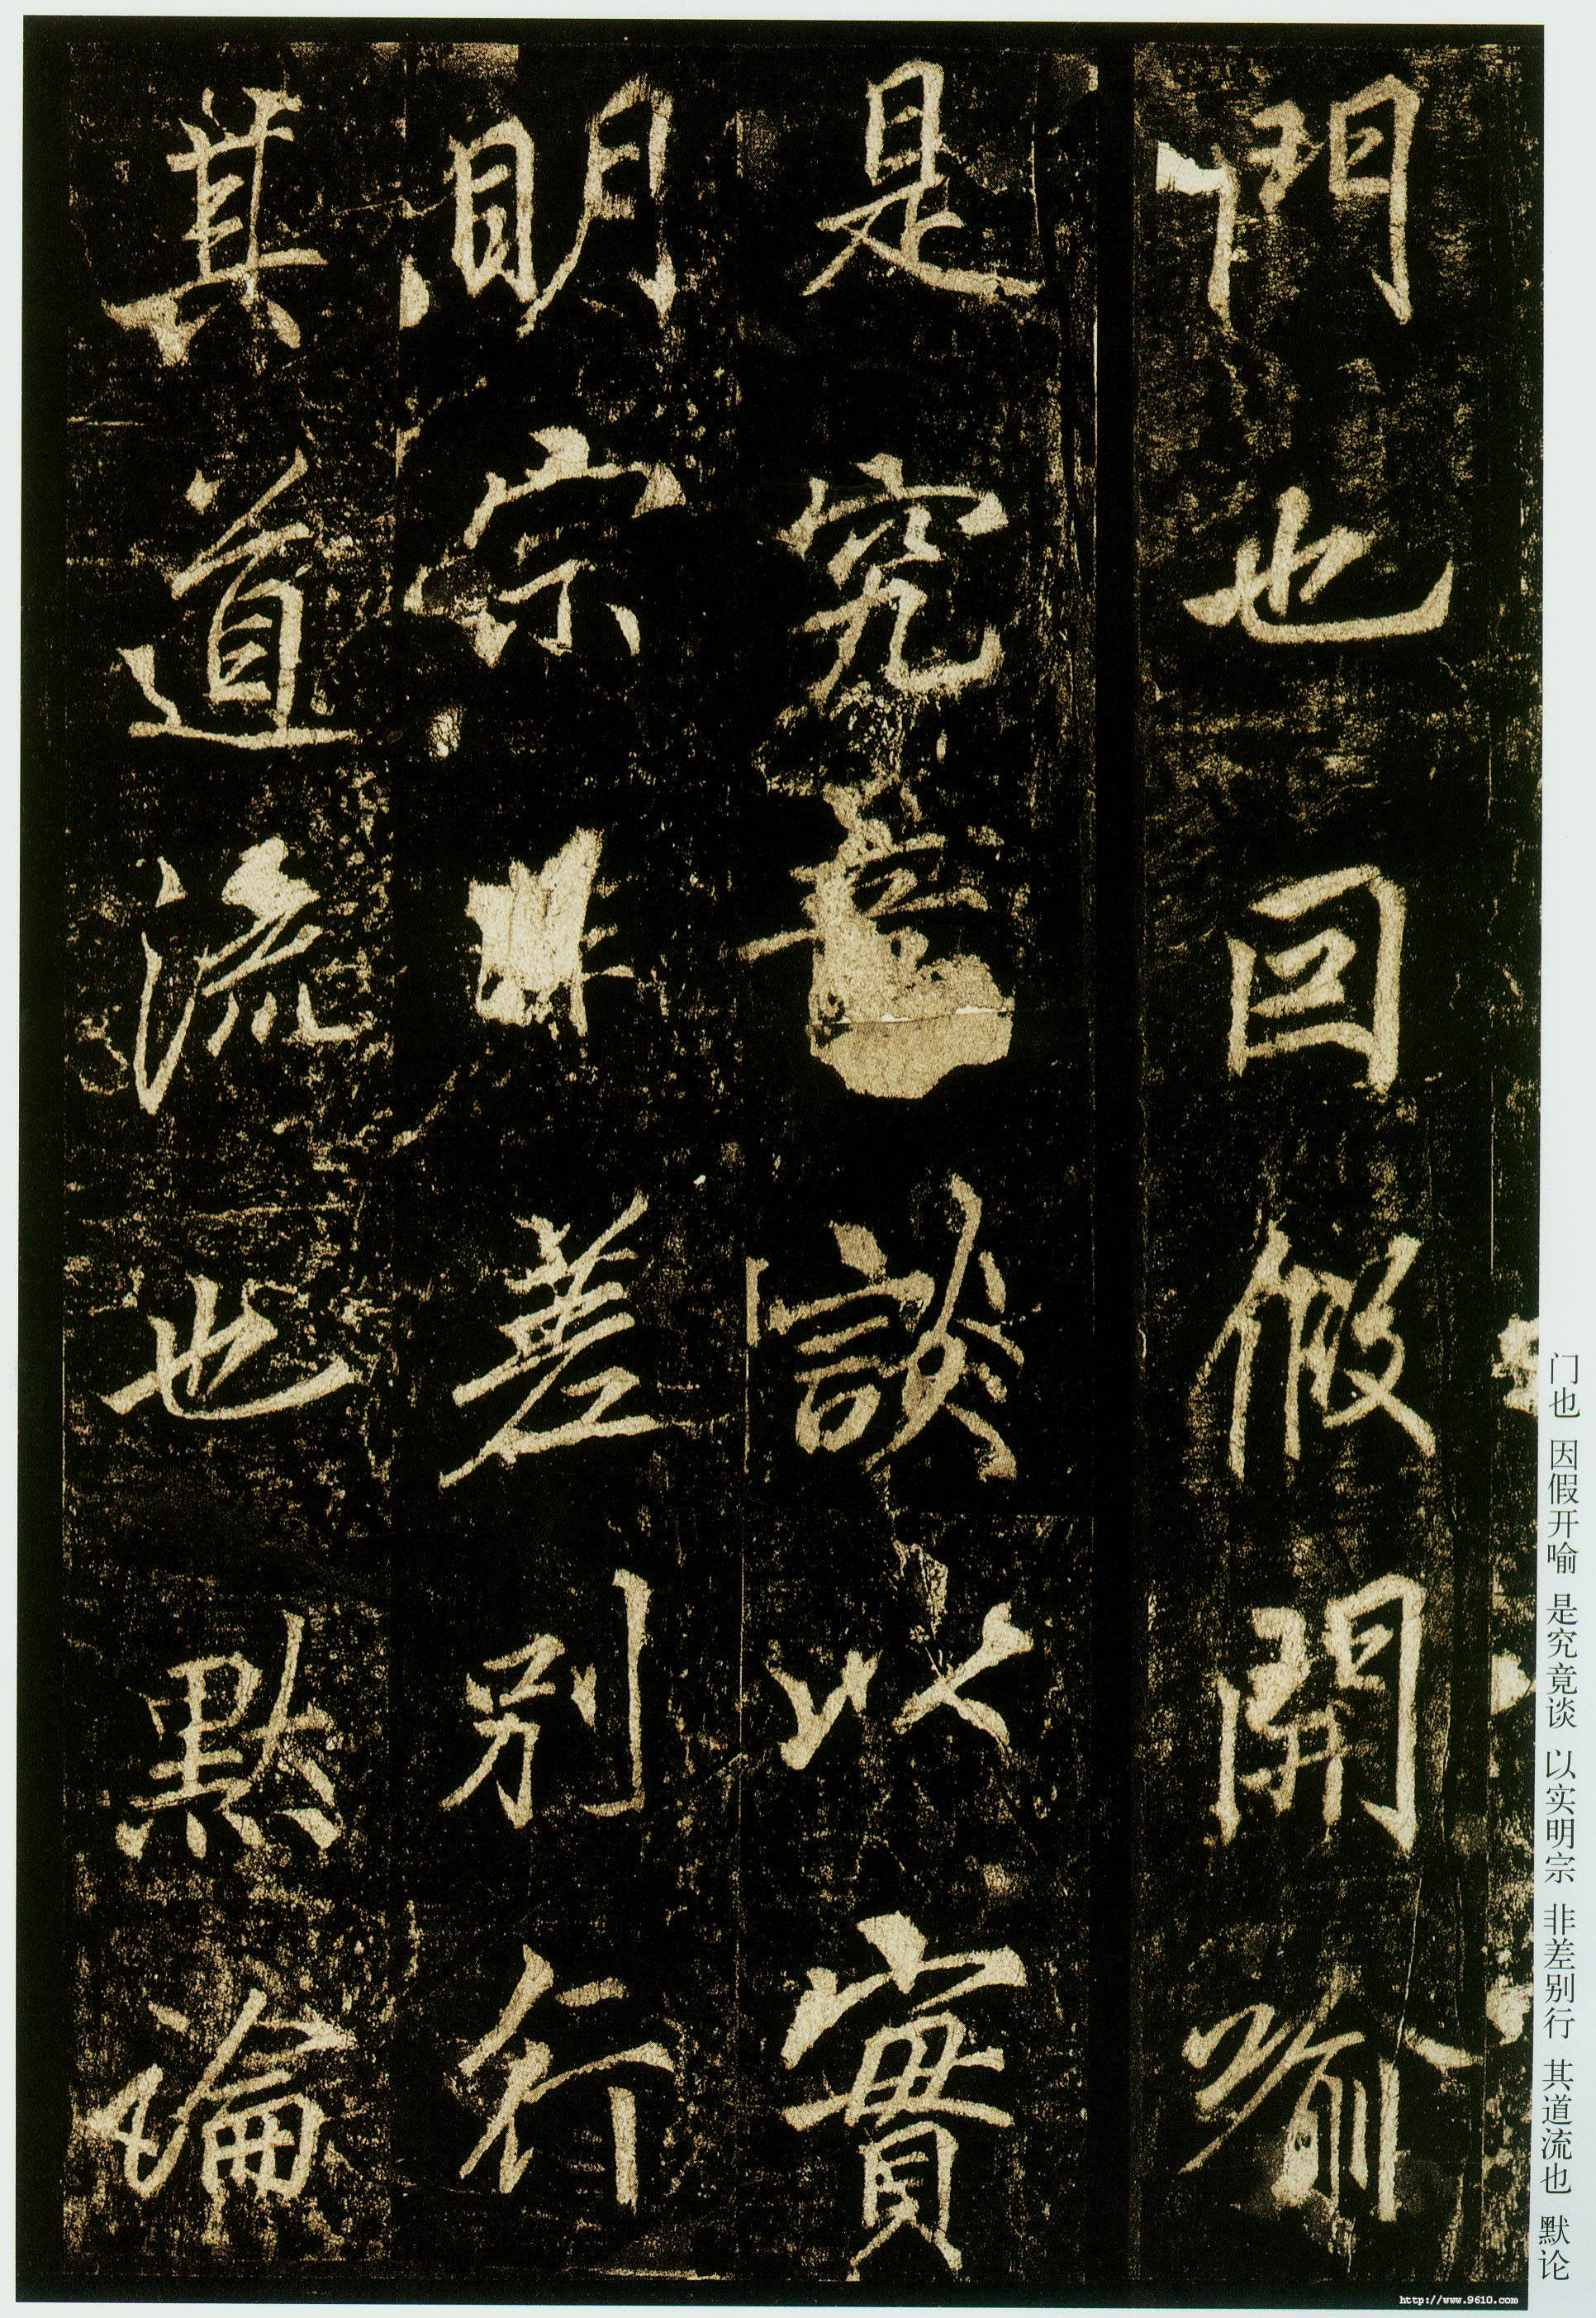 門也因假開喻
是究竟談以實
明宗非差别行
其道流也默論
门也 因假开喻 是究竟谈 以实明宗 非差别行 其道流也 默论
http://www.9610.com